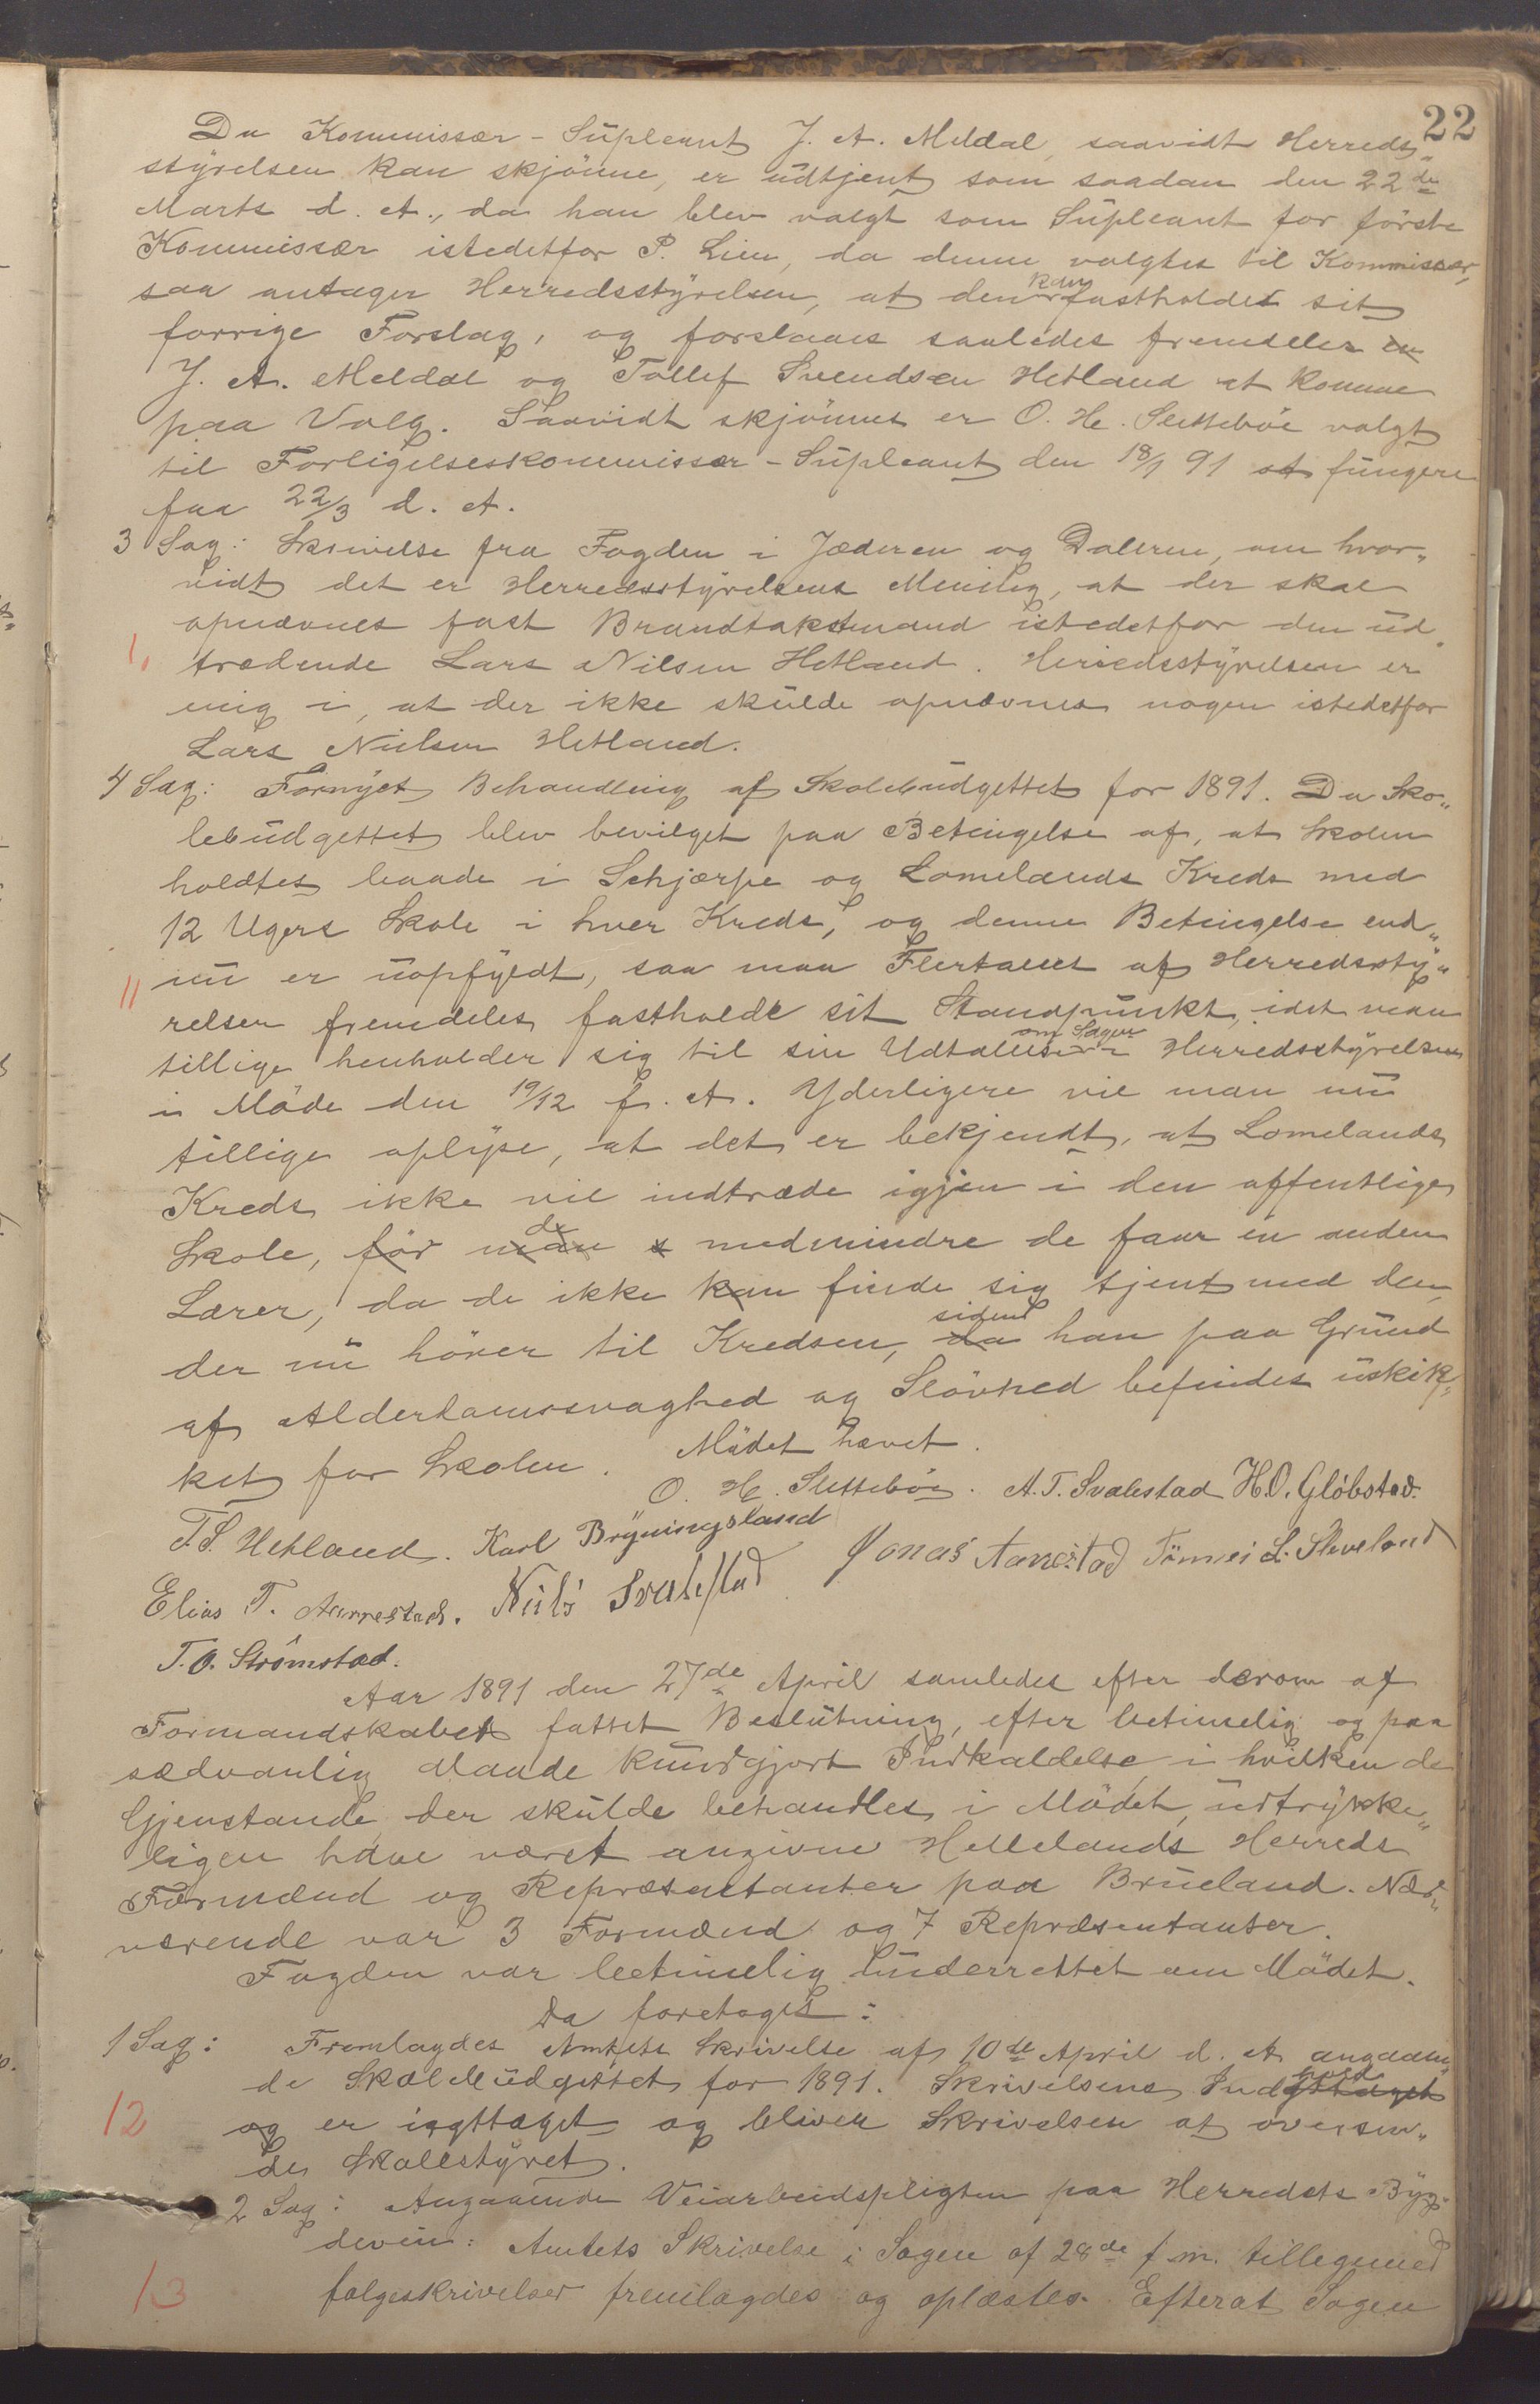 22
Da Kommissær-Supleant J. A. Meldal, saavidt Herreds„
styrelsen kan skjønne, er udtjent som saadan den 22de
Marts d. A., da han blev valgt som Supleant for første
Kommissær istedetfor P. Lien, da denne valgtes til Kommissær,
saa antager Herredsstyrelsen, at den kan fastholdes sit
forrige Forslag, og forslaaes saaledes fremdeles
J. A. Meldal og Tollef Svendsen Hetland at komme
paa Valg. Saavidt skjønnes er O. H. Slettebøe valgt
til Forligelseskommissær-Supleant den 18/1 91 at fungere
fra 22/3 d. A.
3 Sag: Skrivelse fra Fogden i Jæderen og Dalerne, om hvor„
vidt det er Herredsstyrelsens Mening, at der skal
opnævnes fast Brandtakstmand istedetfor den ud„
1, trædende Lars Nilsen Hetland. Herredsstyrelsen er
enig i, at der ikke skulde opnævnes nogen istedetfor
Lars Nielsen Hetland.
4 Sag: Fornyet Behandling af Skolebudgettet for 1891. Da Sko„
lebudgettet blev bevilget paa Betingelse af, at Skolen
holdtes baade i Schjærpe og Lomelands Kreds med
12 Ugers Skole i hver Kreds, og denne Betingelse end„
11 nu er uopfyldt, saa maa Flertallet af Herredssty„
relsen fremdeles fastholde sit Standpunkt, idet man
tillige henholder sig til sin Udtalelse om Sagen i Herredsstyrelsen
i Møde den 19/12 f. A. Yderligere vil man nu
tillige oplyse, at det er bekjendt, at Lomelands
Kreds ikke vil indtræde igjen i den offentlige
Skole, før man de medmindre de faar en anden
Lærer, da de ikke kan finde sig tjent med den,
der nu hører til Kredsen, da siden han paa Grund
af Alderdomssvaghed og Sløvhed befindes uskik„
ket for Skolen. Mødet hævet.
O. H. Slettebøe. A. T. Svalestad H. O. Gløbstad.
T. S. Hetland. Karl Bryningsland Jonas Aarrestad Tønnes L. Sleveland
Elias T. Aarrestad. Nils Svalestad
T. O. Strømstad.
Aar 1891 den 27de April samledes efter derom af
Formandskabet fattet Beslutning, efter betimelig og paa
sædvanlig Maade kundgjort Indkaldelse i hvilken de
Gjenstande der skulde behandles i Mødet, udtrykke„
ligen have været angivne Hellelands Herreds
Formænd og Repræsentanter paa Brueland. Nær„
værende var 3 Formænd og 7 Repræsentanter.
Fogden var betimelig underrettet om Mødet.
Da foretoges:
1 Sag: Fremlagdes Amtets Skrivelse af 10de April d. A. angaaen„
de Skolebudgettet for 1891. Skrivelsens Indhold
12 og er iagttaget og bliver Skrivelsen at oversen„
des Skolestyret.
2 Sag: Angaaende Veiarbeidspligten paa Herredets Byg„
deveie: Amtets Skrivelse i Sagen af 28de f. m. tilligemed
13 følgeskrivelser fremlagdes og oplæstes. Efterat Sagen